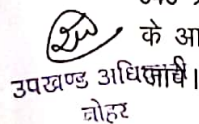 के आ
उपखण्ड अधिकारी।
नोहर